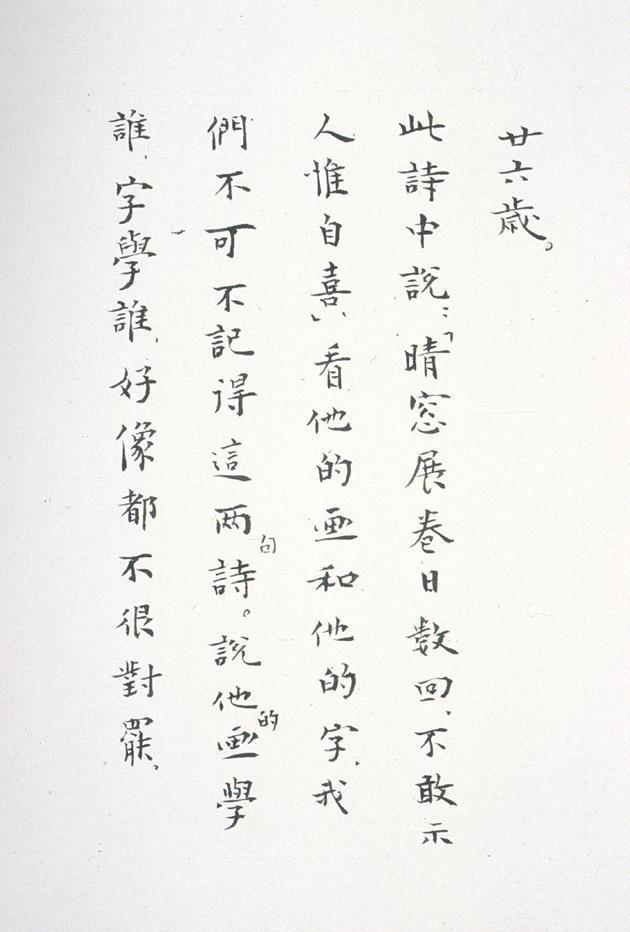 廿六歲。
此詩中說：「晴窓展卷日數回，不敢示
人惟自喜」，看他的画和他的字，我
們不可不記得這两句詩。說他的画學
誰，字學誰，好像都不很對罷，